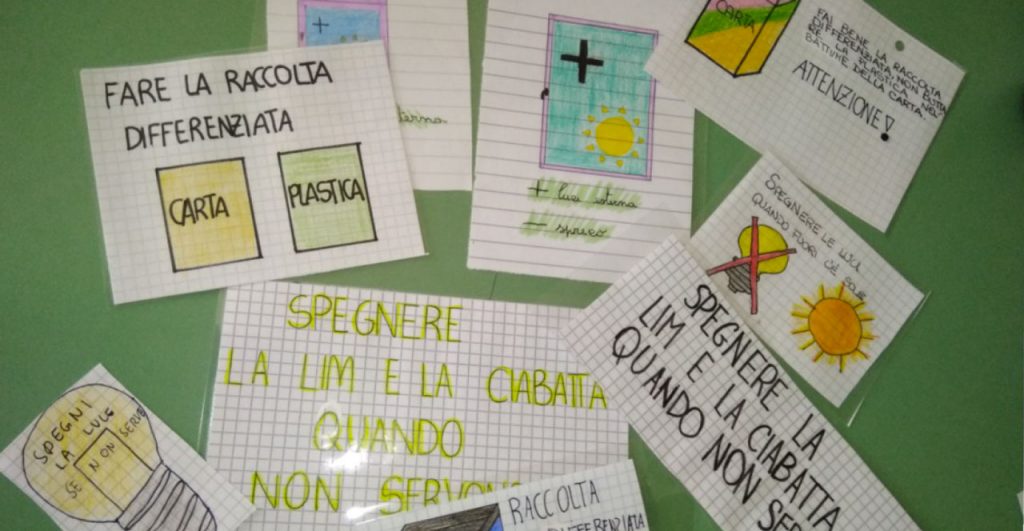 FARE LA RACCOLTA
DIFFERENZIATA
CARTA
PLASTICA
+
+
+ luce esterna
– spreco
CARTA
FAI BENE LA RACCOLTA
DIFFERENZIATA, NON BUTTA
RE LA PLASTICA NEL
BATTUME DELLA CARTA.
ATTENZIONE!
SPEGNERE LE LUCI
QUANDO FUORI C'È SOLE
SPEGNERE
LA LIM E LA CIABATTA
QUANDO
NON SERVONO
SPEGNERE LA
LIM E LA CIABATTA
QUANDO NON SE
SPEGNI
LA LUCE
SE NON SERVE
RACCOLTA
DIFFERENZIATA